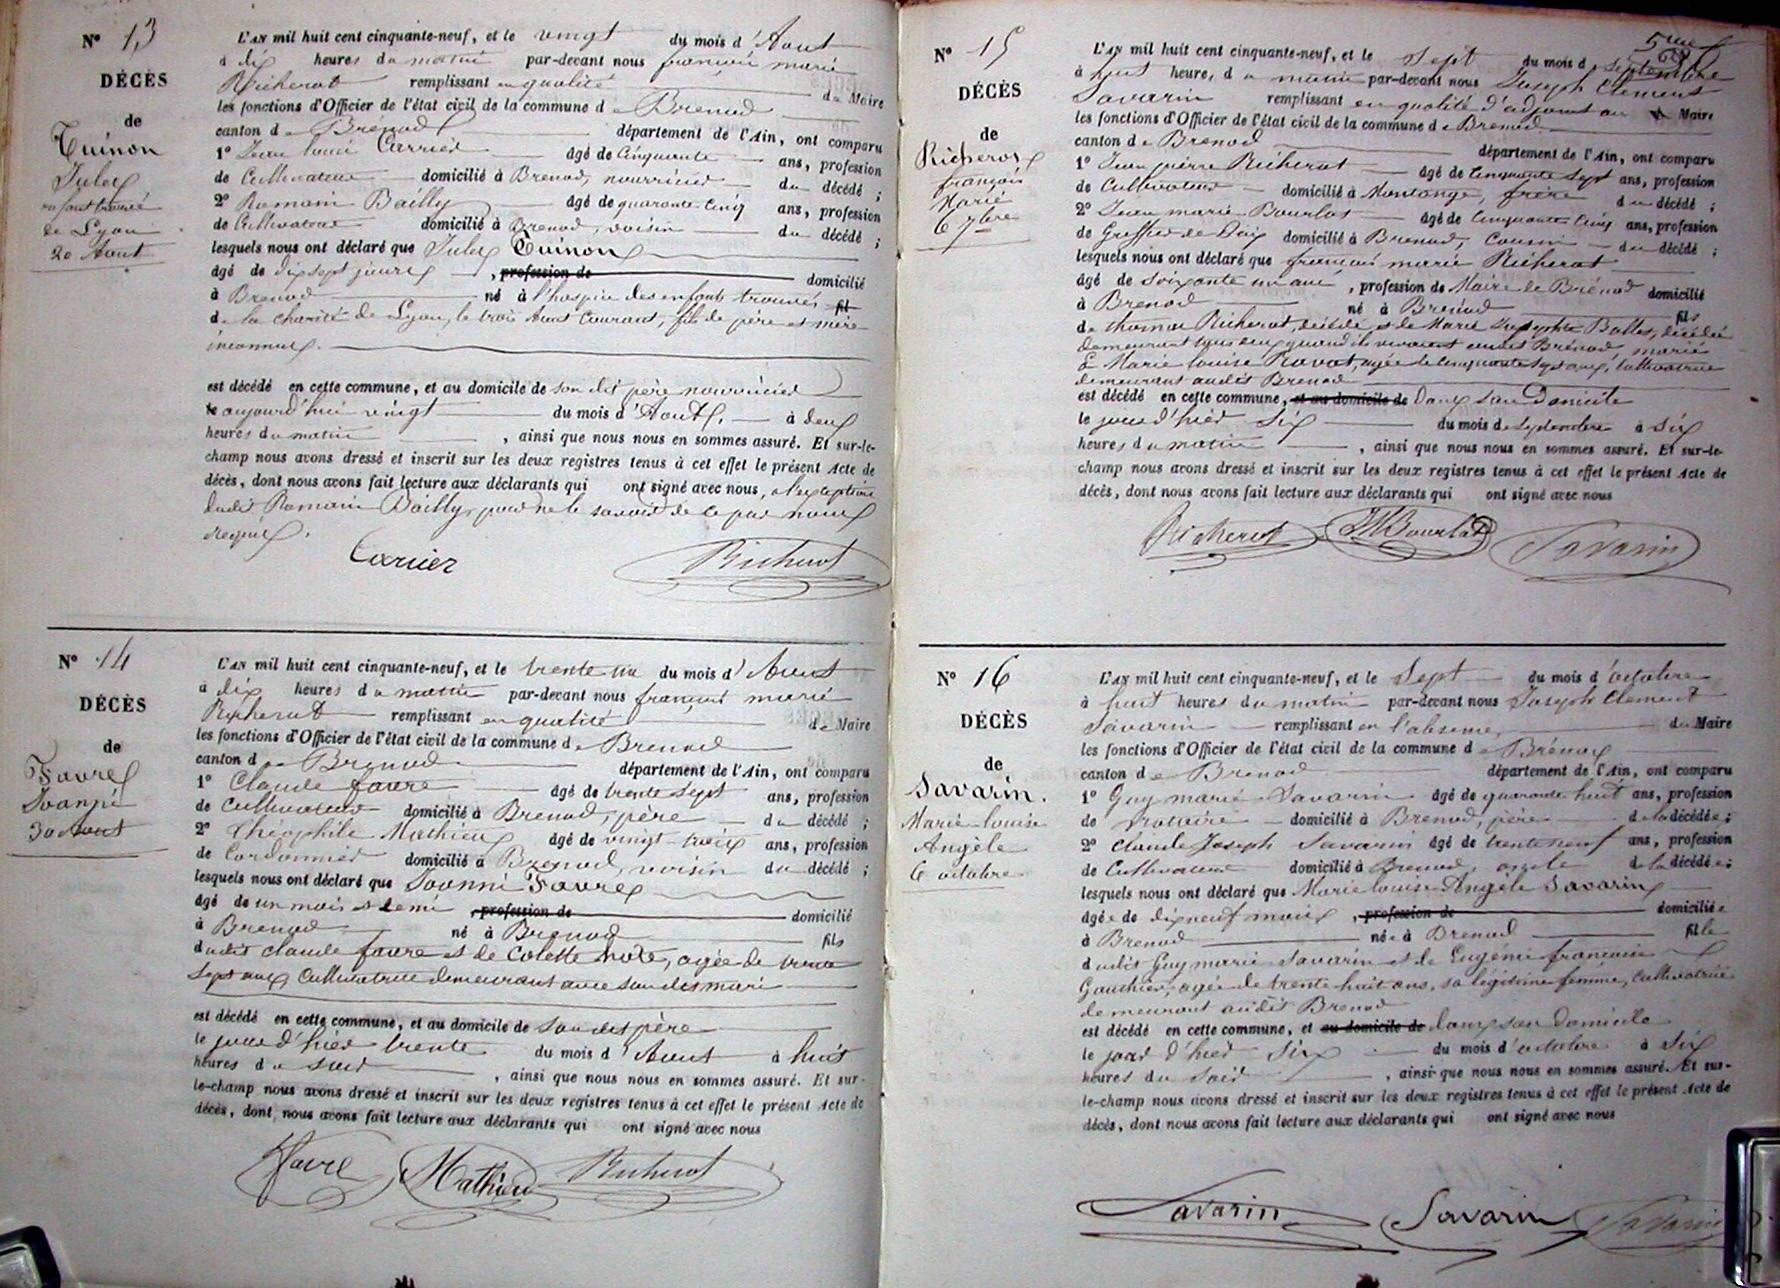 N° 13
DÉCÈS
de
Tuinon
Jules
enfant trouvé
de Lyon
20 Aout
L'AN mil huit cent cinquante-neuf, et le vingt du mois d'Aout
à dix heures du matin par-devant nous françois marie
Richerot remplissant en qualité de Maire
les fonctions d'Officier de l'état civil de la commune de Brenod
canton de Brénod département de l'Ain, ont comparu
1° Jean louis Carrier âgé de Cinquante ans, profession
de Cultivateur domicilié à Brenod, nourricier du décédé ;
2° Romain Bailly âgé de quarante cinq ans, profession
de Cultivateur domicilié à Brenod, voisin du décédé ;
lesquels nous ont déclaré que Jules Tuinon
âgé de dix sept jours, profession de domicilié
à Brenod né à l'hospice des enfants trouvés fil
de la charité de Lyon, le trois Aout Courant, fils de père et mère
inconnus.
est décédé en cette commune, et au domicile de son dit père nourricier
le aujourd'hui vingt du mois d'Aout, à deux
heures du matin, ainsi que nous nous en sommes assuré. Et sur-le-
champ nous avons dressé et inscrit sur les deux registres tenus à cet effet le présent Acte de
décès, dont nous avons fait lecture aux déclarants qui ont signé avec nous, à l'exception
dudit Romain Bailly, pour ne le savoir de ce par nous
requis.
Carrier Richerot
N° 14
DÉCÈS
de
Favre
Joanni
30 Aout
L'AN mil huit cent cinquante-neuf, et le trente un du mois d'Aout
à dix heures du matin par-devant nous françois marie
Richerot remplissant en qualité de Maire
les fonctions d'Officier de l'état civil de la commune de Brenod
canton de Brenod département de l'Ain, ont comparu
1° Claude favre âgé de trente sept ans, profession
de Cultivateur domicilié à Brenod, père du décédé ;
2° Théophile Mathieu âgé de vingt trois ans, profession
de Cordonnier domicilié à Brenod, voisin du décédé ;
lesquels nous ont déclaré que Joanni Favre
âgé de un mois et demi, profession de domicilié
à Brenod né à Brenod fils
dudit claude favre et de Colette, agée de trente
sept ans, Cultivatrice demeurant avec son dit mari
est décédé en cette commune, et au domicile de son dit père
le jour d'hier trente du mois d'Aout à huit
heures du soir, ainsi que nous nous en sommes assuré. Et sur-
le-champ nous avons dressé et inscrit sur les deux registres tenus à cet effet le présent Acte de
décès, dont nous avons fait lecture aux déclarants qui ont signé avec nous
Favre Mathieu Richerot
5me
N° 15
DÉCÈS
de
Richerot
françois
Marie
6 7bre
L'AN mil huit cent cinquante-neuf, et le sept du mois de Septembre
à huit heures du matin par-devant nous Joseph Clement
Savarin remplissant en qualité d'adjoint au Maire
les fonctions d'Officier de l'état civil de la commune de Brenod
canton de Brenod département de l'Ain, ont comparu
1° Jean pierre Richerot âgé de cinquante sept ans, profession
de Cultivateur domicilié à Montange, frère du décédé ;
2° Jean marie Bourlot âgé de Cinquante Cinq ans, profession
de Greffier de Paix domicilié à Brenod, Cousin du décédé ;
lesquels nous ont déclaré que françois marie Richerot
âgé de soixante un ans, profession de Maire de Brénod domicilié
à Brenod né à Brénod fils
de thomas Richerot, décédé, et de Marie Josephte Ballet, décédée
demeurant tous deux quand ils vivaient audit Brénod, marié
à Marie louise Ravat, agée de cinquante sept ans, Cultivatrice
demeurant audit Brenod
est décédé en cette commune, et au domicile de dans son Domicile
le jour d'hier six du mois de Septembre à six
heures du matin, ainsi que nous nous en sommes assuré. Et sur-le-
champ nous avons dressé et inscrit sur les deux registres tenus à cet effet le présent Acte de
décès, dont nous avons fait lecture aux déclarants qui ont signé avec nous
Richerot JMBourlot Savarin
N° 16
DÉCÈS
de
Savarin.
Marie louise
Angèle
6 octobre
L'AN mil huit cent cinquante-neuf, et le sept du mois d'octobre
à huit heures du matin par-devant nous Joseph Clement
Savarin remplissant en l'absence du Maire
les fonctions d'Officier de l'état civil de la commune de Brénod
canton de Brenod département de l'Ain, ont comparu
1° Guy marie Savarin âgé de quarante huit ans, profession
de Notaire domicilié à Brenod, père de la décédée ;
2° Claude Joseph Savarin âgé de trente neuf ans, profession
de Cultivateur domicilié à Brenod, oncle de la décédée ;
lesquels nous ont déclaré que Marie louise Angèle Savarin
âgée de dix neuf mois, profession de domiciliée
à Brenod née à Brenod fille
dudit Guy marie Savarin et de Eugénie françoise
Gauthier, agée de trente huit ans, sa légitime femme, Cultivatrice
demeurant audit Brenod
est décédé en cette commune, et au domicile de dans son Domicile
le jour d'hier six du mois d'octobre à six
heures du soir, ainsi que nous nous en sommes assuré. Et sur-
le-champ nous avons dressé et inscrit sur les deux registres tenus à cet effet le présent Acte de
décès, dont nous avons fait lecture aux déclarants qui ont signé avec nous
Savarin Savarin Savarin